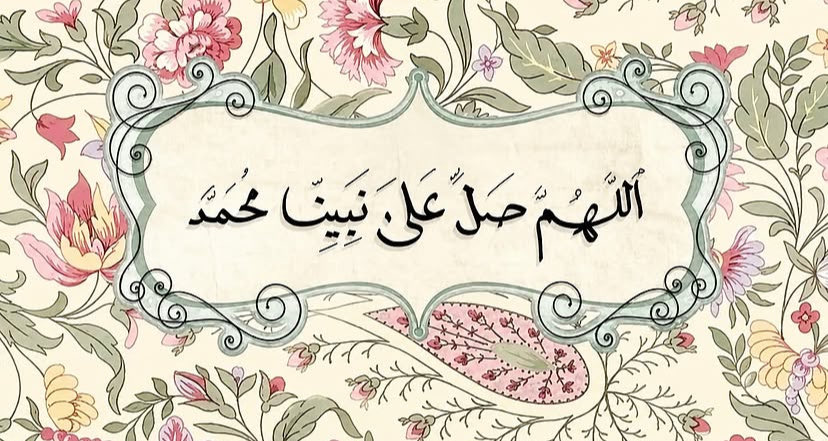 اللَّهُمَّ صَلِّ عَلَىٰ نَبِيِّنَا مُحَمَّد